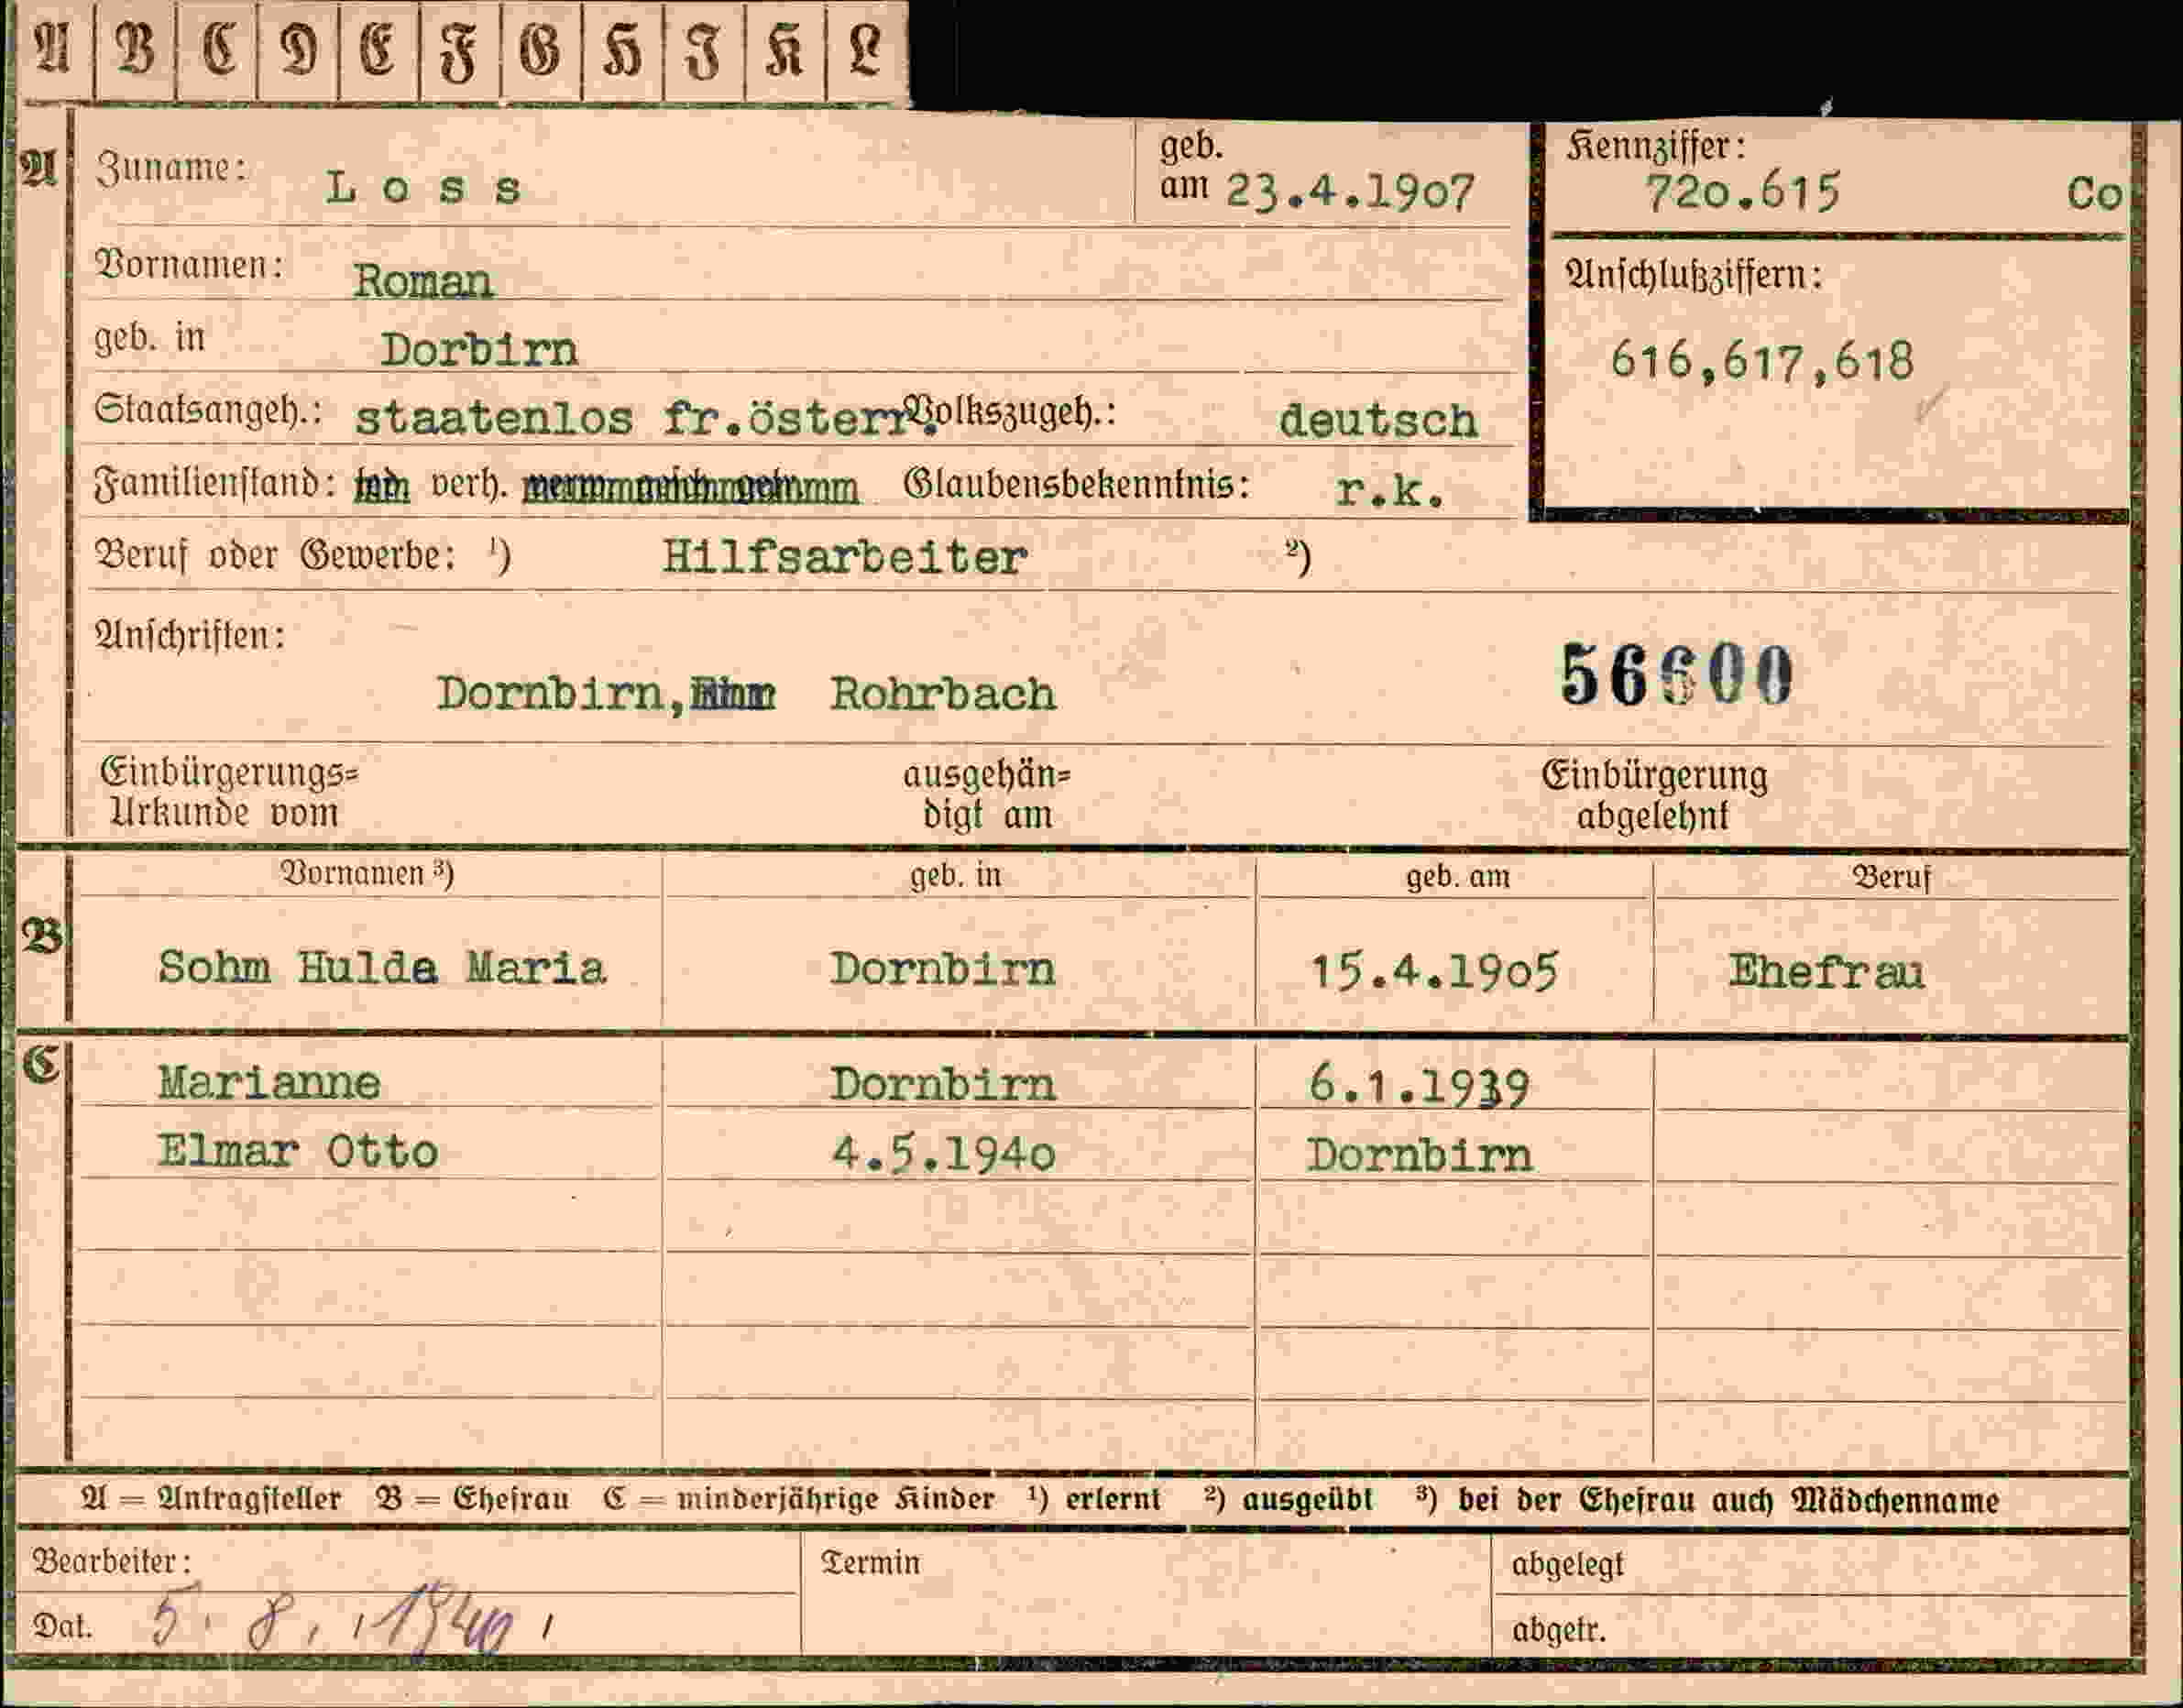 A B C D E F G H J K L
A
Zuname: Loss
geb.
am 23.4.1907
Kennziffer:
720.615 Co
Vornamen: Roman
Anschlußziffern:
616,617,618
geb. in Dorbirn
Staatsangeh.: staatenlos fr.österr. Volkszugeh.: deutsch
Familienstand: verh. Glaubensbekenntnis: r.k.
Beruf oder Gewerbe: ¹) Hilfsarbeiter ²)
Anschriften:
Dornbirn, Rohrbach
56600
Einbürgerungs=
Urkunde vom
ausgehän=
digt am
Einbürgerung
abgelehnt
Vornamen ³) geb. in geb. am Beruf
B
Sohm Hulda Maria Dornbirn 15.4.1905 Ehefrau
C
Marianne Dornbirn 6.1.1939
Elmar Otto 4.5.1940 Dornbirn
A = Antragsteller B = Ehefrau C = minderjährige Kinder ¹) erlernt ²) ausgeübt ³) bei der Ehefrau auch Mädchenname
Bearbeiter: Termin abgelegt
Dat. 5. 8. 1940 abgetr.